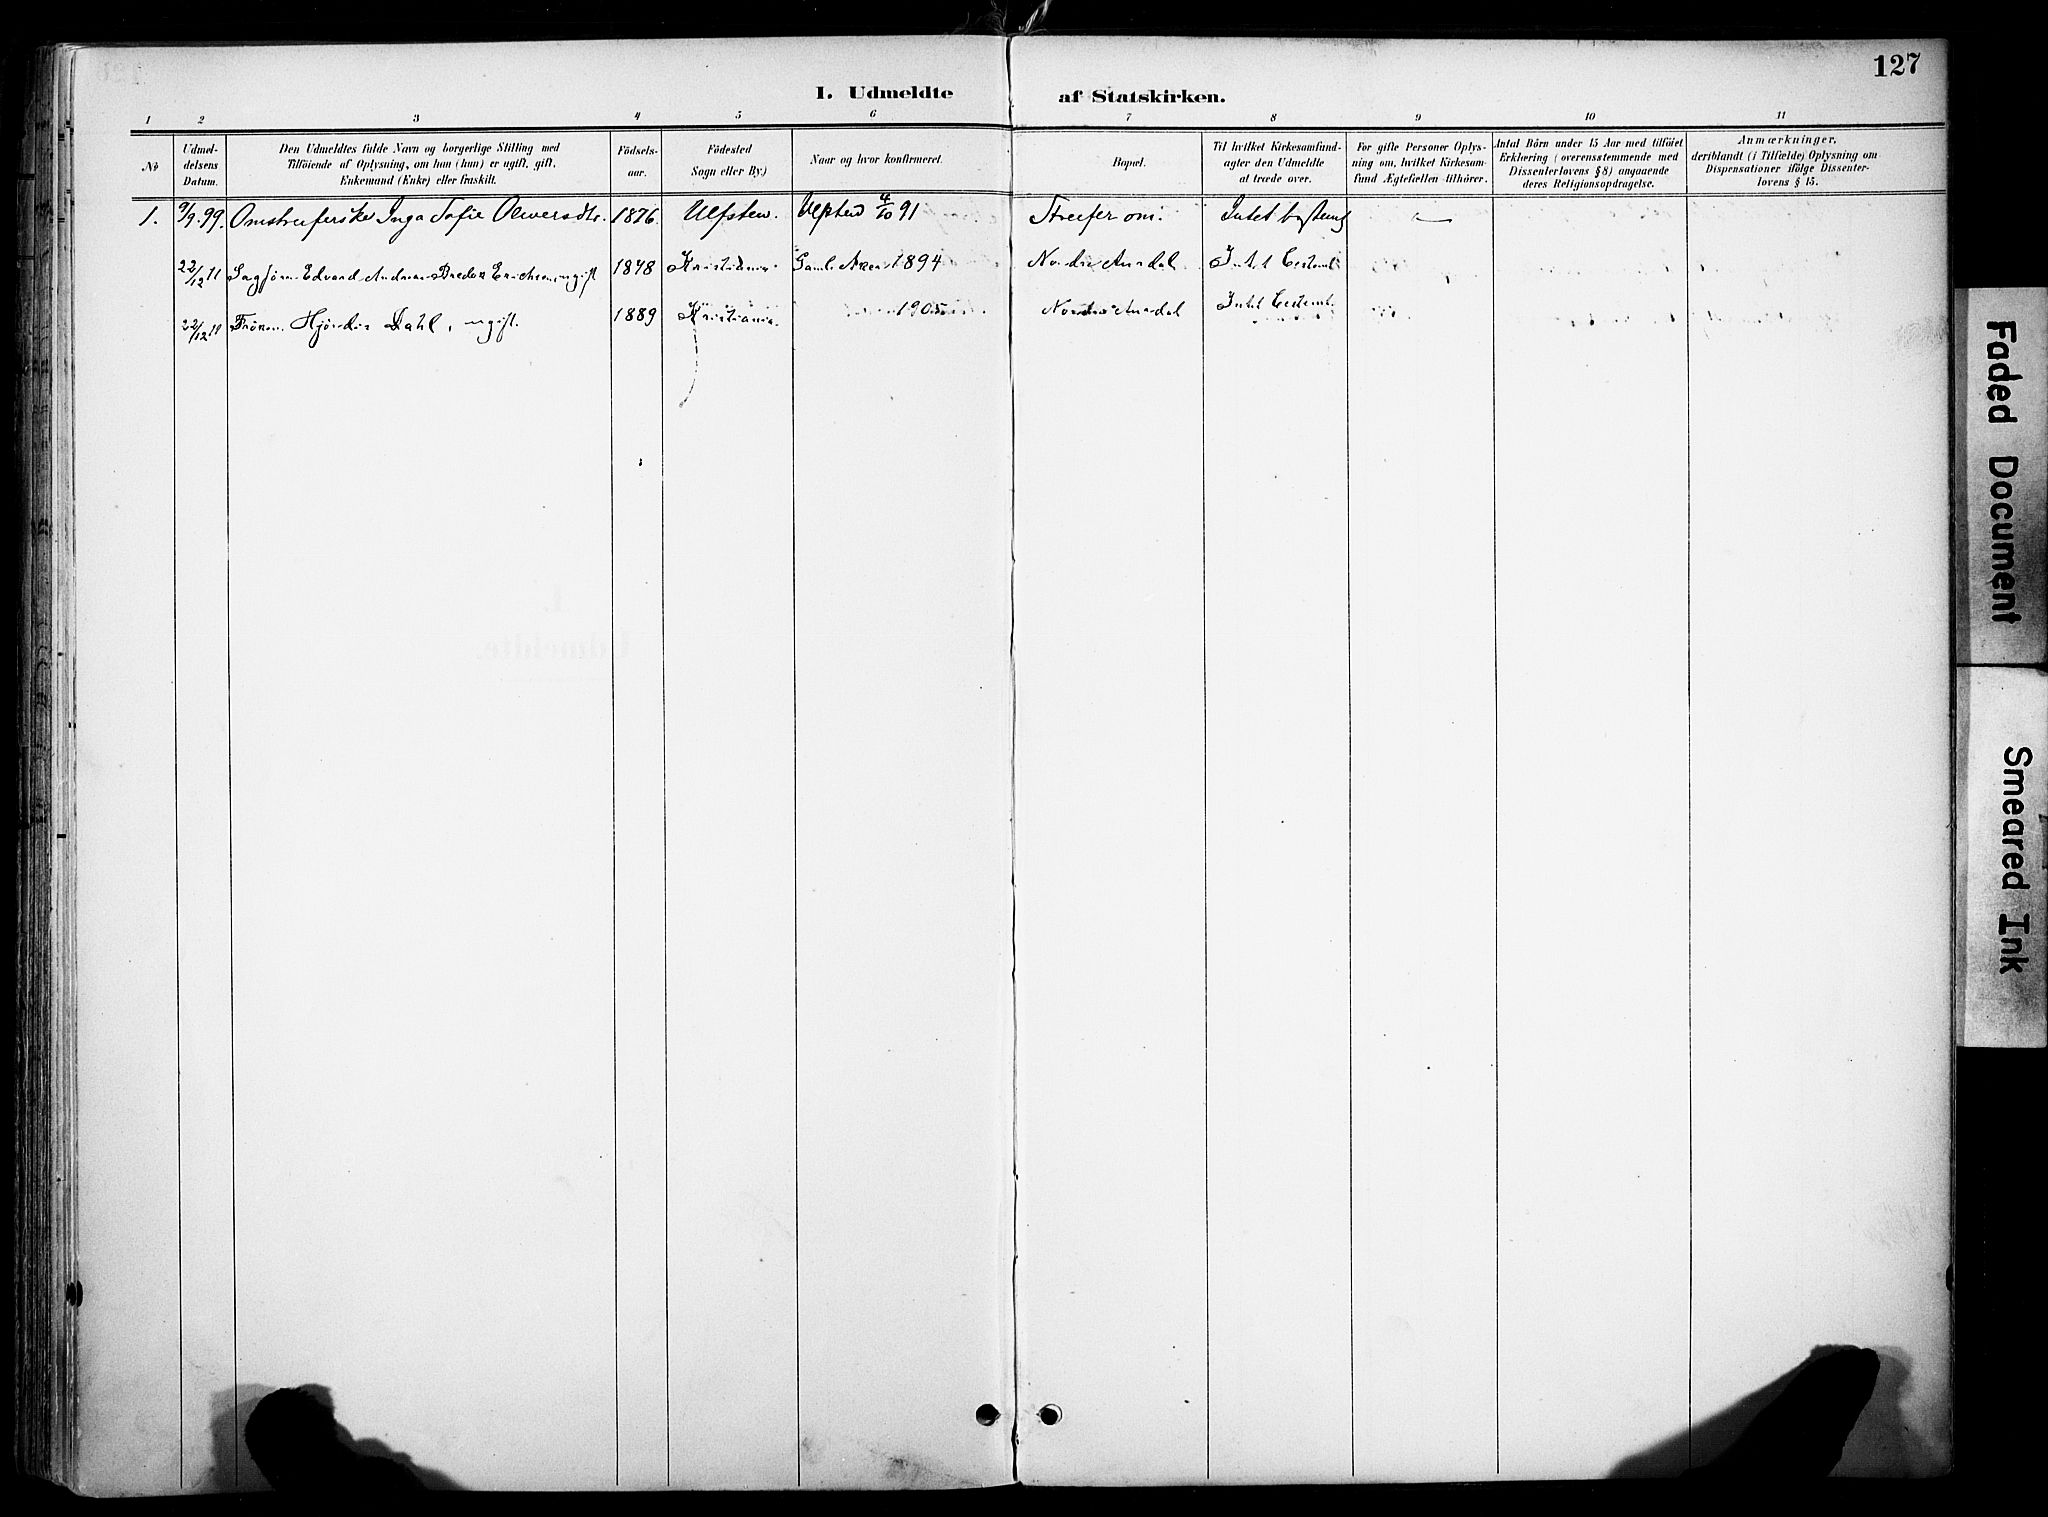 127
I. Udmeldte af Statskirken.
1 2 3 4 5 6 7 8 9 10 11
No
Udmeldelsens Datum.
Den Udmeldtes fulde Navn og borgerlige Stilling med
Tilföiende af Oplysning, om han (hun) er ugift, gift,
Enkemand (Enke) eller fraskilt.
Födselsaar.
Födested
Sogn eller By.)
Naar og hvor konfirmeret.
Bopæl.
Til hvilket Kirkesamfund-
agter den Udmeldte
at træde over.
For gifte Personer Oplys-
ning om, hvilket Kirkesam-
fund Ægtefællen tilhörer.
Antal Börn under 15 Aar med tilföiet
Erklæring (overensstemmende med
Dissenterlovens § 8) angaaende
deres Religionsopdragelse.
Anmærkninger,
deriblandt (i Tilfælde) Oplysning om
Dispensationer ifölge Dissenter-
lovens § 15.
1. 9/9 99. Omstreiferske Inga Sofie 1876. Ulfsten. Ulfsten 4/10 91 Streifer om. Intet bestemt —
22/12 11 Edvard Andreas Bredo Erichsen, ugift 1878 Kristiania. Gamle Aker 1894 Nordre Aurdal Intet bestemt
22/12 11 Fröken Hjördis Dahl, ugift. 1889 Kristiania. 1905 Nordre Aurdal Intet bestemt.
Faded Document
Smeared Ink